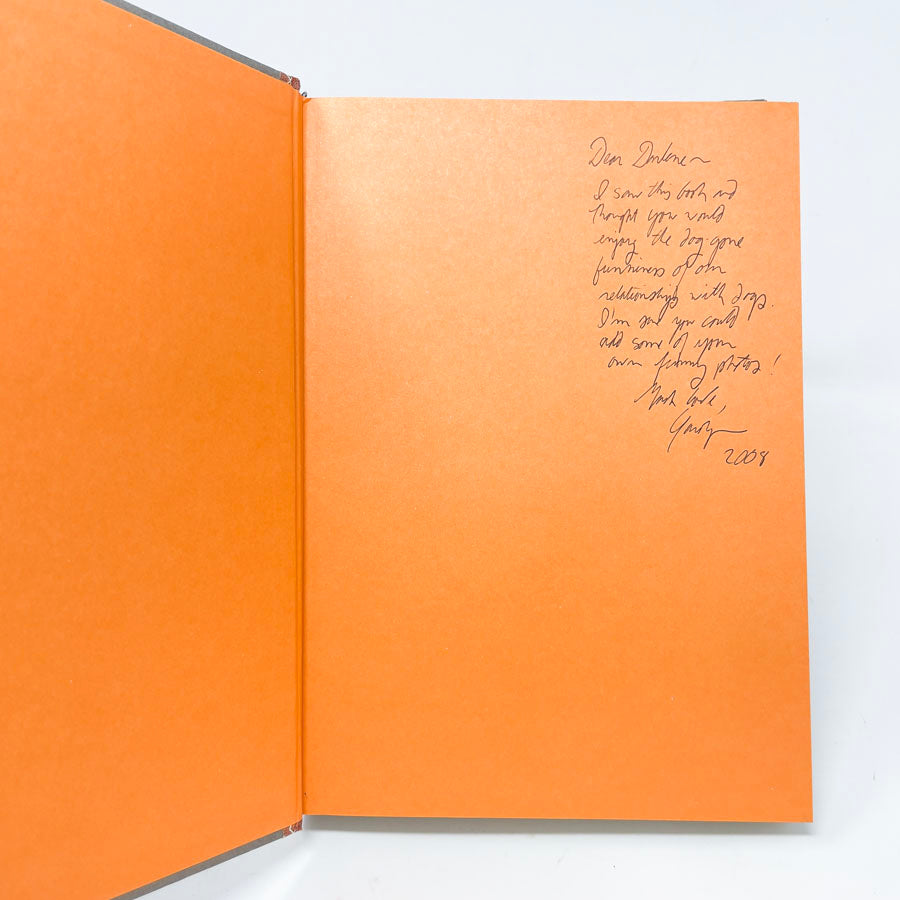 Dear Darlene ~
I saw this book and
thought you would
enjoy the dog-gone
funniness of our
relationships with dogs.
I'm sure you could
add some of your
own funny photos!
Much love,
2008